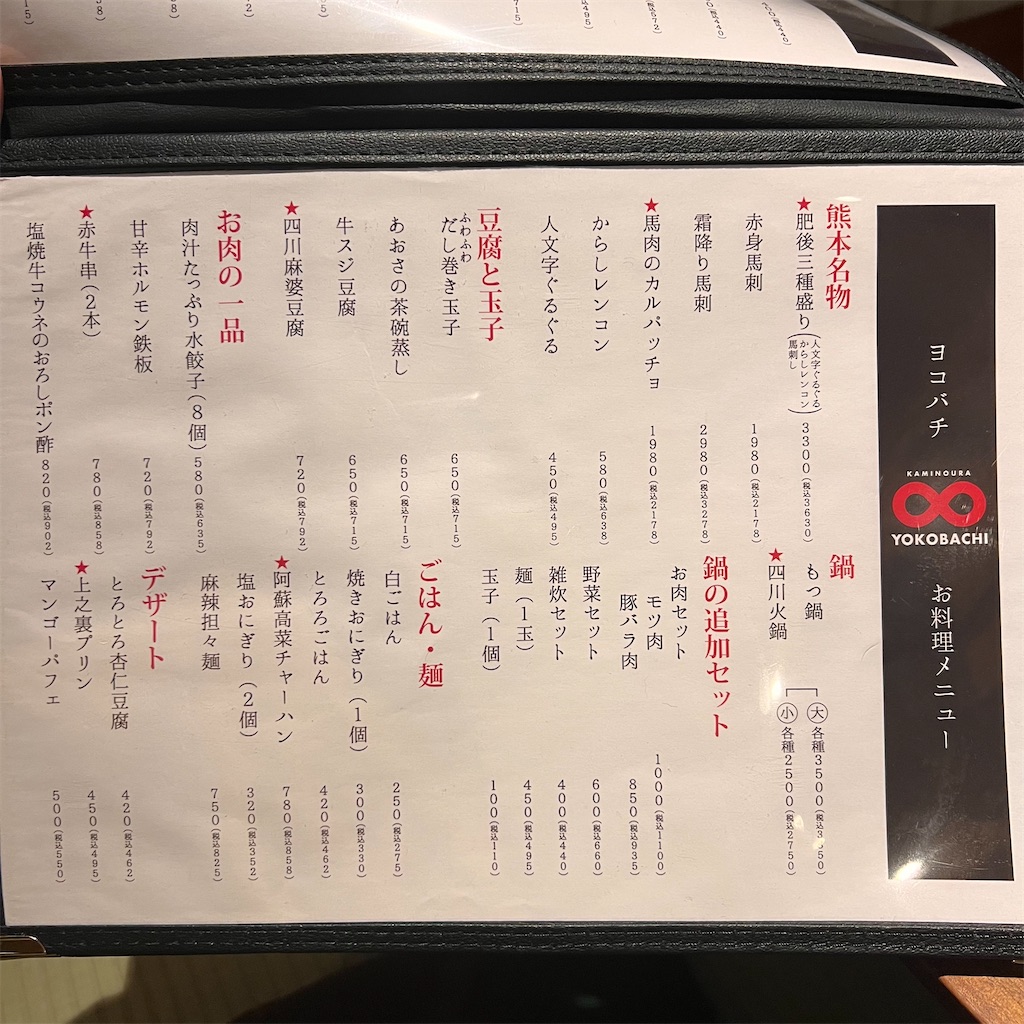 ヨコバチ
KAMINOURA
YOKOBACHI
お料理メニュー
熊本名物
★肥後三種盛り(人文字ぐるぐる
からしレンコン
馬刺し) 3300(税込3630)
赤身馬刺 1980(税込2178)
霜降り馬刺 2980(税込3278)
★馬肉のカルパッチョ 1980(税込2178)
からしレンコン 580(税込638)
人文字ぐるぐる 450(税込495)
豆腐と玉子
ふわふわ
だし巻き玉子 650(税込715)
あおさの茶碗蒸し 650(税込715)
牛スジ豆腐 650(税込715)
★四川麻婆豆腐 720(税込792)
お肉の一品
肉汁たっぷり水餃子(8個) 580(税込635)
甘辛ホルモン鉄板 720(税込792)
★赤牛串(2本) 780(税込858)
塩焼牛コウネのおろしポン酢 820(税込902)
鍋
もつ鍋
★四川火鍋
大 各種3500
小 各種2500(税込2750)
鍋の追加セット
お肉セット
モツ肉 1000(税込1100)
豚バラ肉 850(税込935)
野菜セット 600(税込660)
雑炊セット 400(税込440)
麺(1玉) 450(税込495)
玉子(1個) 100(税込110)
ごはん・麺
白ごはん 250(税込275)
焼きおにぎり(1個) 300(税込330)
とろろごはん 420(税込462)
★阿蘇高菜チャーハン 780(税込858)
塩おにぎり(2個) 320(税込352)
麻辣担々麺 750(税込825)
デザート
とろとろ杏仁豆腐 420(税込462)
★上之裏プリン 450(税込495)
マンゴーパフェ 500(税込550)